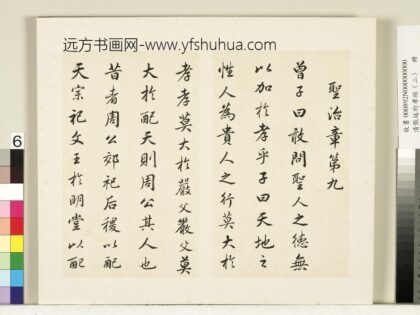 远方书画网-www.yfshuhua.com
聖治章第九
曾子曰敢問聖人之德無
以加於孝乎子曰天地之
性人為貴人之行莫大於
孝孝莫大於嚴父嚴父莫
大於配天則周公其人也
昔者周公郊祀后稷以配
天宗祀文王於明堂以配
6